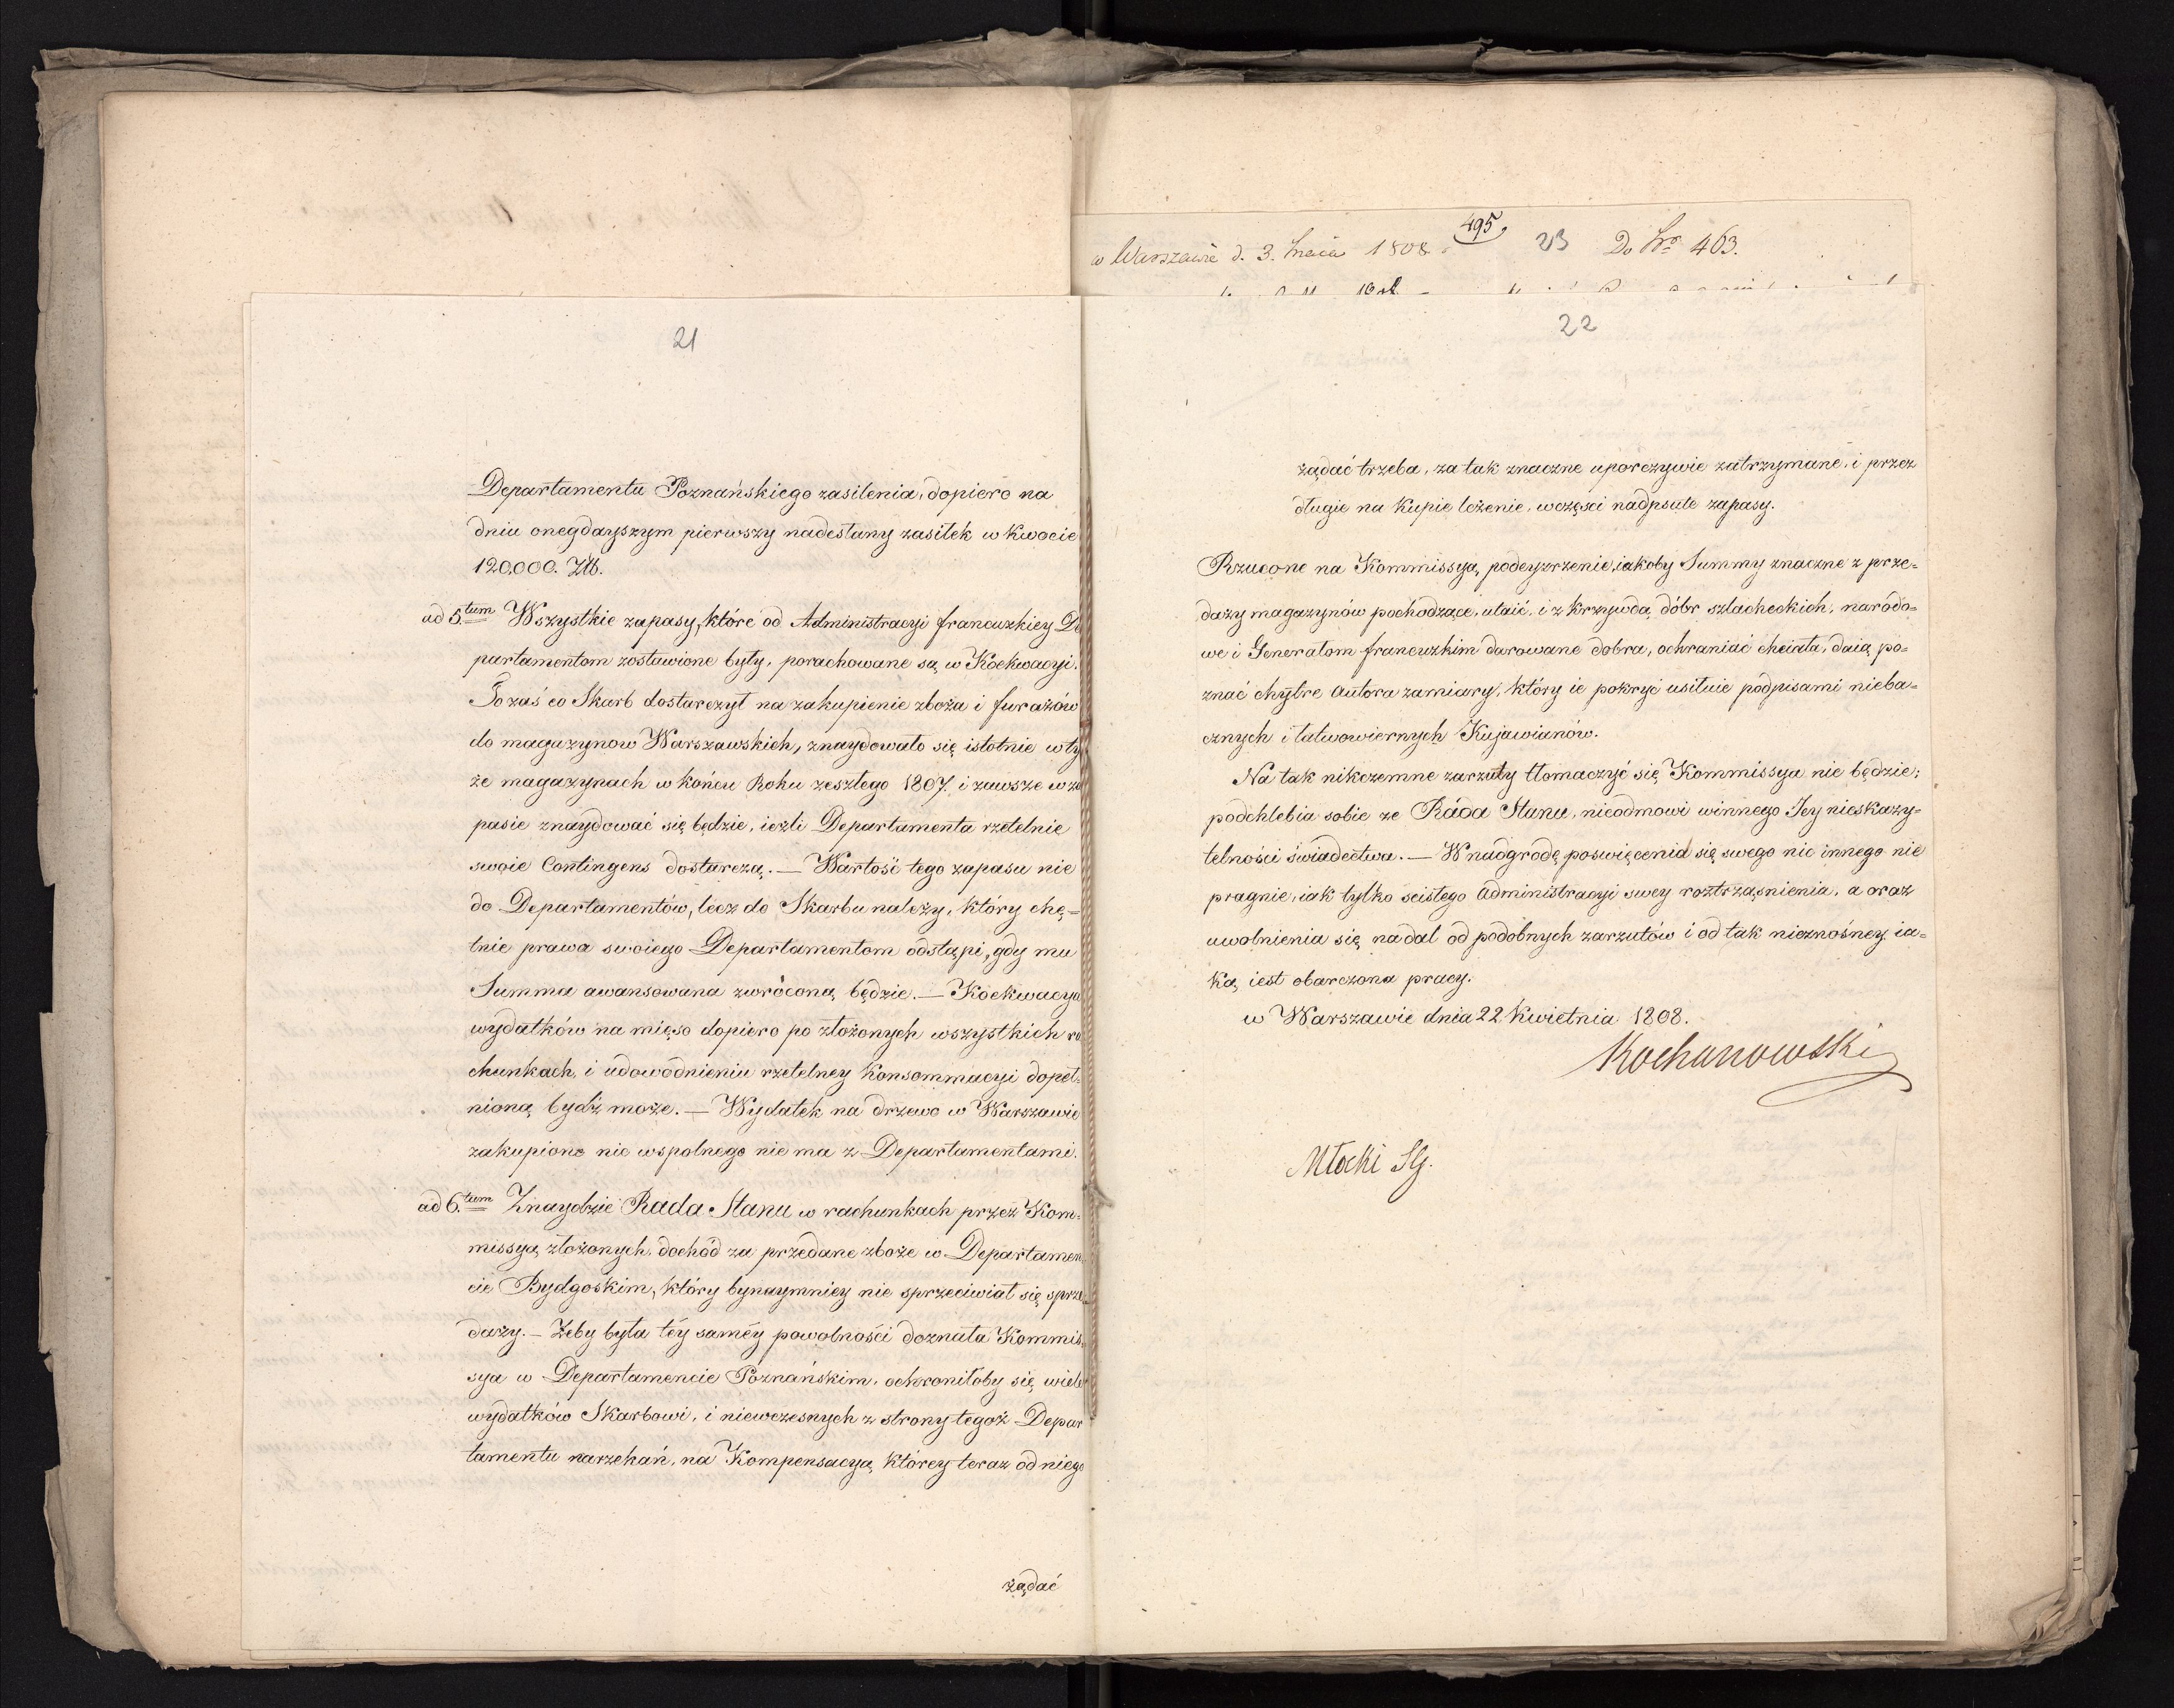 21
Departamentu Poznańskiego zasilenia, dopiero na
dniu onegdayszym pierwszy nadesłany zasiłek w kwocie
120,000. Złł.
ad 5.tum Wszystkie zapasy, które od Administracyi francuzkiey De
partamentom zostawione były, porachowane są w Koekwacyi.
To zaś co Skarb dostarczył na zakupienie zboża i furażów
do magazynow Warszawskich, znaydowało się istotnie w ty
że magazynach w końcu Roku zeszłego 1807. i zawsze w za
pasie znaydować się będzie, ieżli Departamenta rzetelnie
swoie Contingens dostarczą. — Wartość tego zapasu nie
do Departamentów, lecz do Skarbu należy, który chę=
tnie prawa swoiego Departamentom odstąpi, gdy mu
Summa awansowana zwróconą będzie. — Koekwacya
wydatków na mięso dopiero po złożonych wszystkich ra
chunkach, i udowodnieniu rzetelney Konsommacyi dopeł=
nioną bydź może. — Wydatek na drzewo w Warszawie
zakupione nic wspolnego nie ma z Departamentami.
ad 6.tum Znaydzie Rada Stanu w rachunkach przez Kom=
missyą złożonych, dochód za przedane zboże w Departamen
cie Bydgoskim, który bynaymniey nie sprzeciwiał się sprze
daży. — Żeby była téy saméy powolności doznała Kommis
sya w Departamencie Poznańskim, ochroniłoby się wiele
wydatków Skarbowi, i niewczesnych z strony tegoż Depar
tamentu narzekań, na Kompensacyą którey teraz od niego
żądać
w Warszawie d. 3. Maia 1808.
495
23
Do Nro 463.
22
żądać trzeba, za tak znaczne uporczywie zatrzymane, i przez
długie na kupie leżenie, wczęsci nadpsute zapasy.
Rzucone na Kommissyą podeyzrzenie, iakoby Summy znaczne z prze=
daży magazynów pochodzące, utaić, i z krzywdą dóbr szlacheckich, narodo=
we i Generałom francuzkim darowane dobra, ochraniać chciała, daią po=
znać chytre Autora zamiary, który ie pokryć usiłuie podpisami nieba=
cznych i łatwowiernych Kujawianów.
Na tak nikczemne zarzuty tłomaczyć się Kommissya nie będzie;
podchlebia sobie ze Rada Stanu, nieodmowi winnego Jey nieskazy=
telności świadectwa. — W nadgrodę poswięcenia się swego nic innego nie
pragnie, iak tylko scisłego Administracyi swey roztrząsnienia, a oraz
uwolnienia się nadal od podobnych zarzutów i od tak nieznośney ia=
ką iest obarczona pracy.
w Warszawie dnia 22 Kwietnia 1808.
Kochanowski
Młocki Sg.